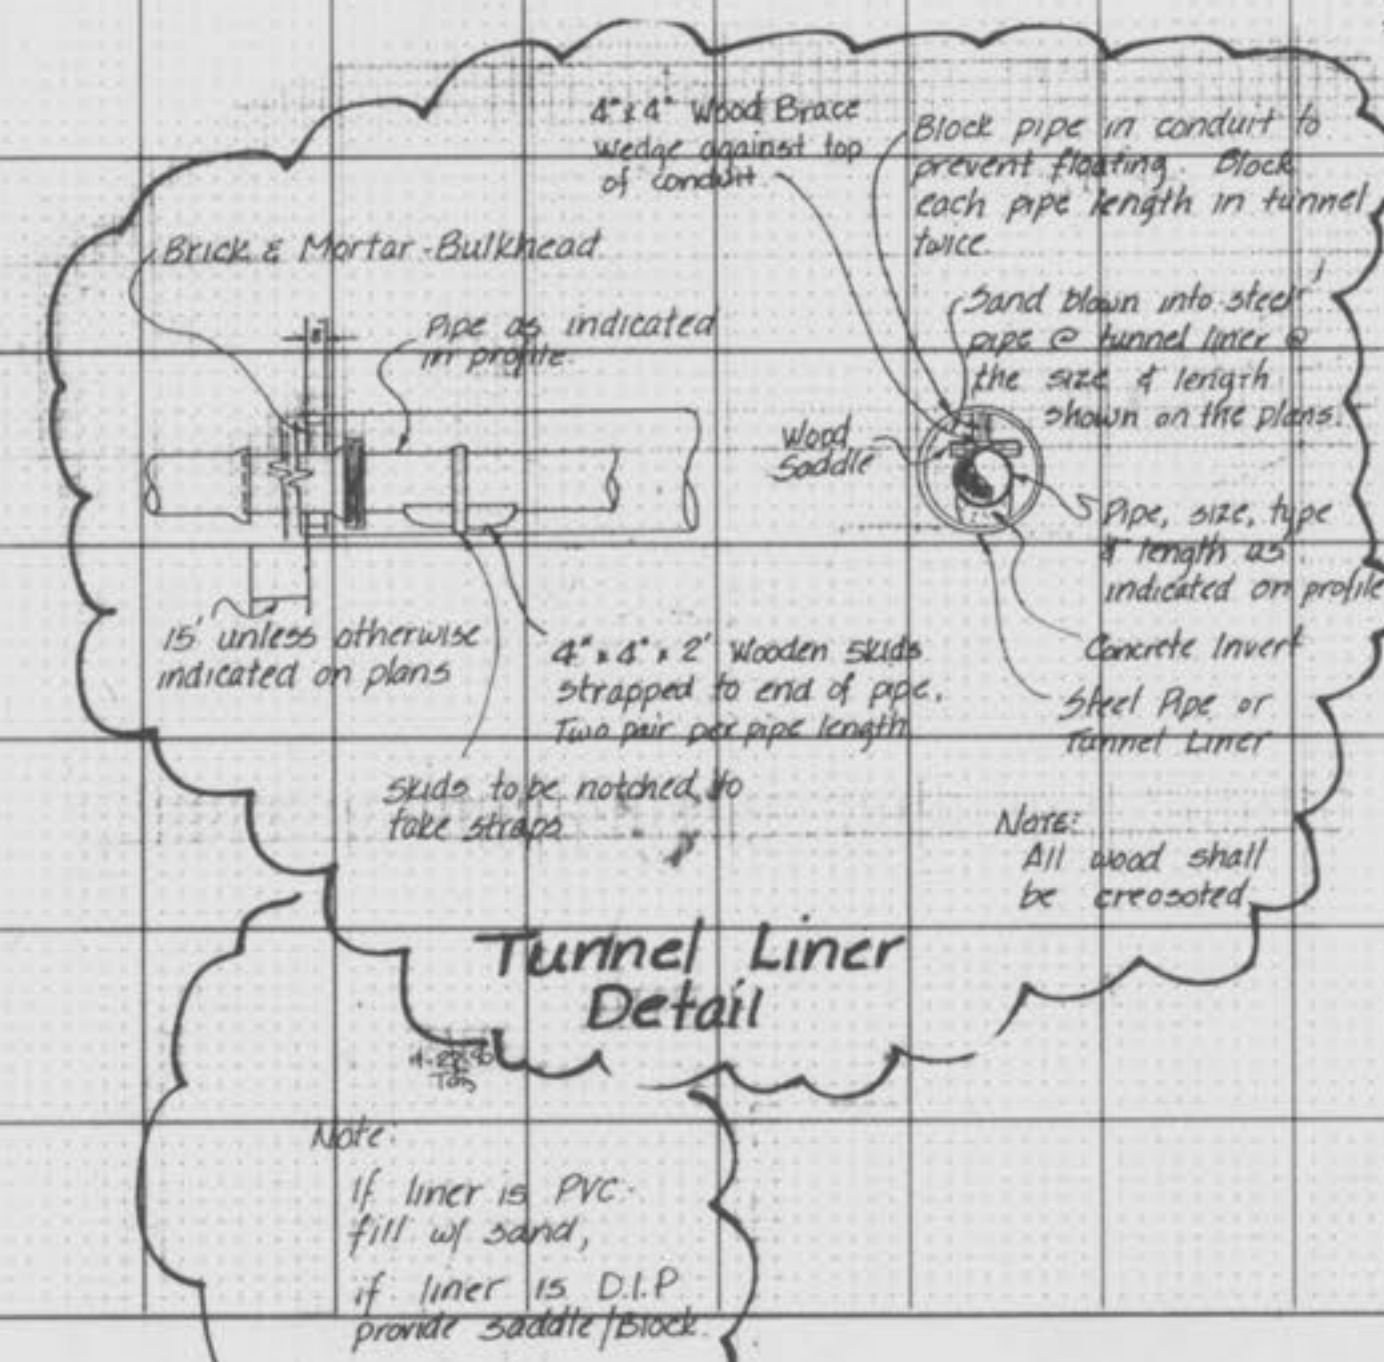 4" x 4" Wood Brace
wedge against top
of conduit
Block pipe in conduit to
prevent floating. Block
each pipe length in tunnel
twice.
Brick & Mortar-Bulkhead
Pipe as indicated
in profile.
8"
Sand blown into steel
pipe @ tunnel liner @
the size & length
shown on the plans.
Wood
Saddle
Pipe, size, type
& length as
indicated on profile
Concrete Invert
Steel Pipe or
Tunnel Liner
15' unless otherwise
indicated on plans
4" x 4" x 2' Wooden skids
strapped to end of pipe.
Two pair per pipe length
Skids to be notched to
take straps
Note:
All wood shall
be creosoted
Tunnel Liner
Detail
Note:
If liner is PVC
fill w/ sand,
if liner is D.I.P
provide saddle/Block.